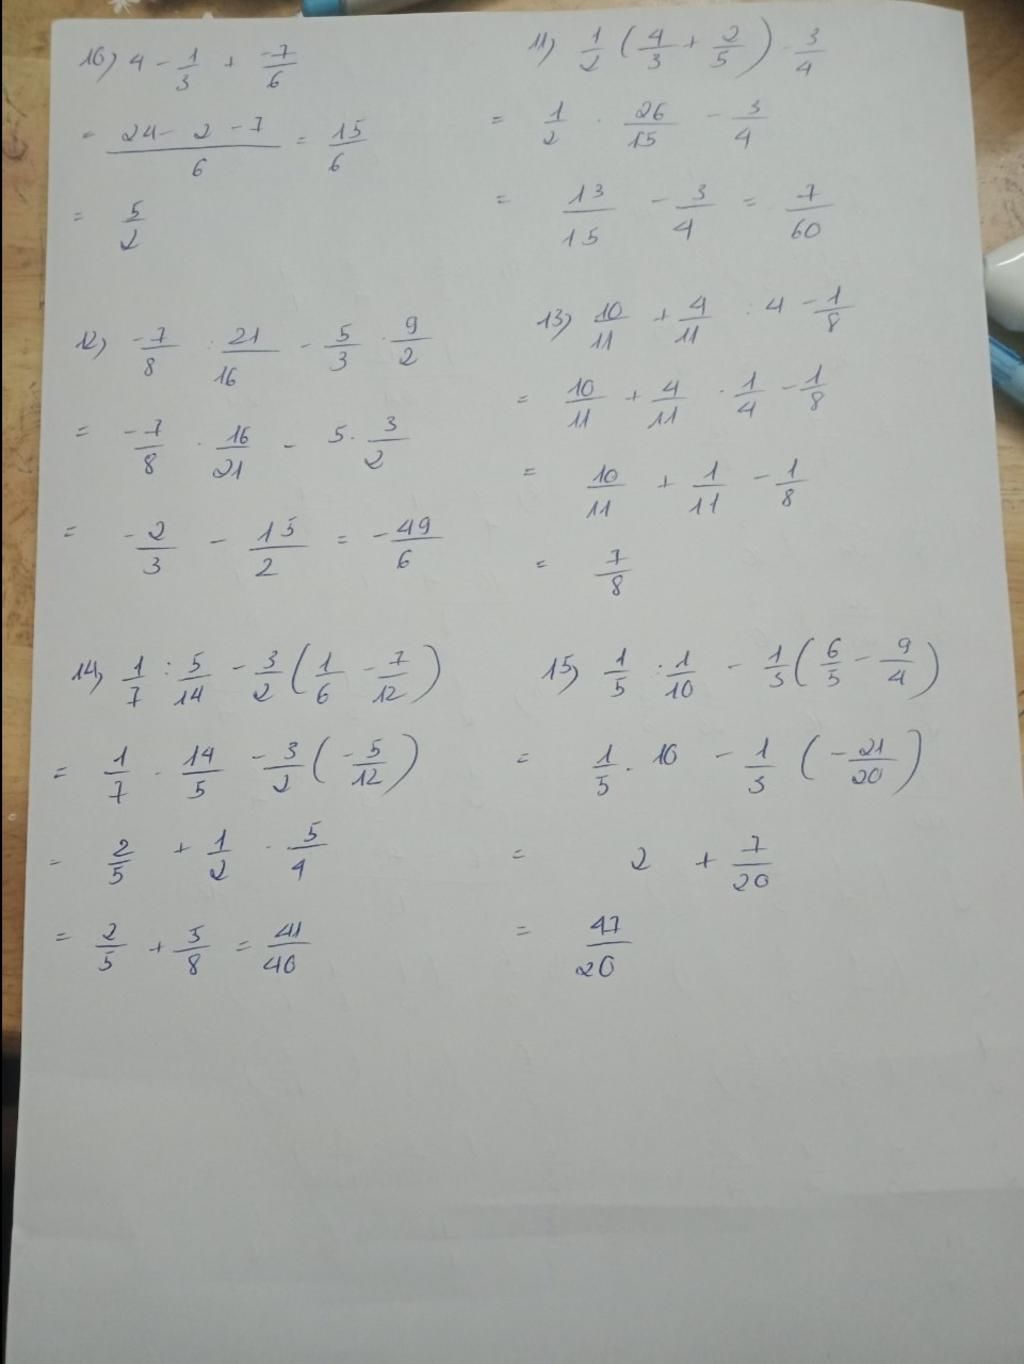 10) 4 - 1/3 + -7/6
= (24 - 2 - 7)/6 = 15/6
= 5/2
11) 1/2 (4/3 + 2/5) - 3/4
= 1/2 . 26/15 - 3/4
= 13/15 - 3/4 = 7/60
12) -7/8 : 21/16 - 5/3 . 9/2
= -7/8 . 16/21 - 5 . 3/2
= -2/3 - 15/2 = -49/6
13) 10/11 + 4/11 : 4 - 1/8
= 10/11 + 4/11 . 1/4 - 1/8
= 10/11 + 1/11 - 1/8
= 7/8
14) 1/7 : 5/14 - 3/2 (1/6 - 7/12)
= 1/7 . 14/5 - 3/2 (-5/12)
= 2/5 + 1/2 . 5/4
= 2/5 + 5/8 = 41/40
15) 1/5 : 1/10 - 1/3 (6/5 - 9/4)
= 1/5 . 10 - 1/3 (-21/20)
= 2 + 7/20
= 47/20